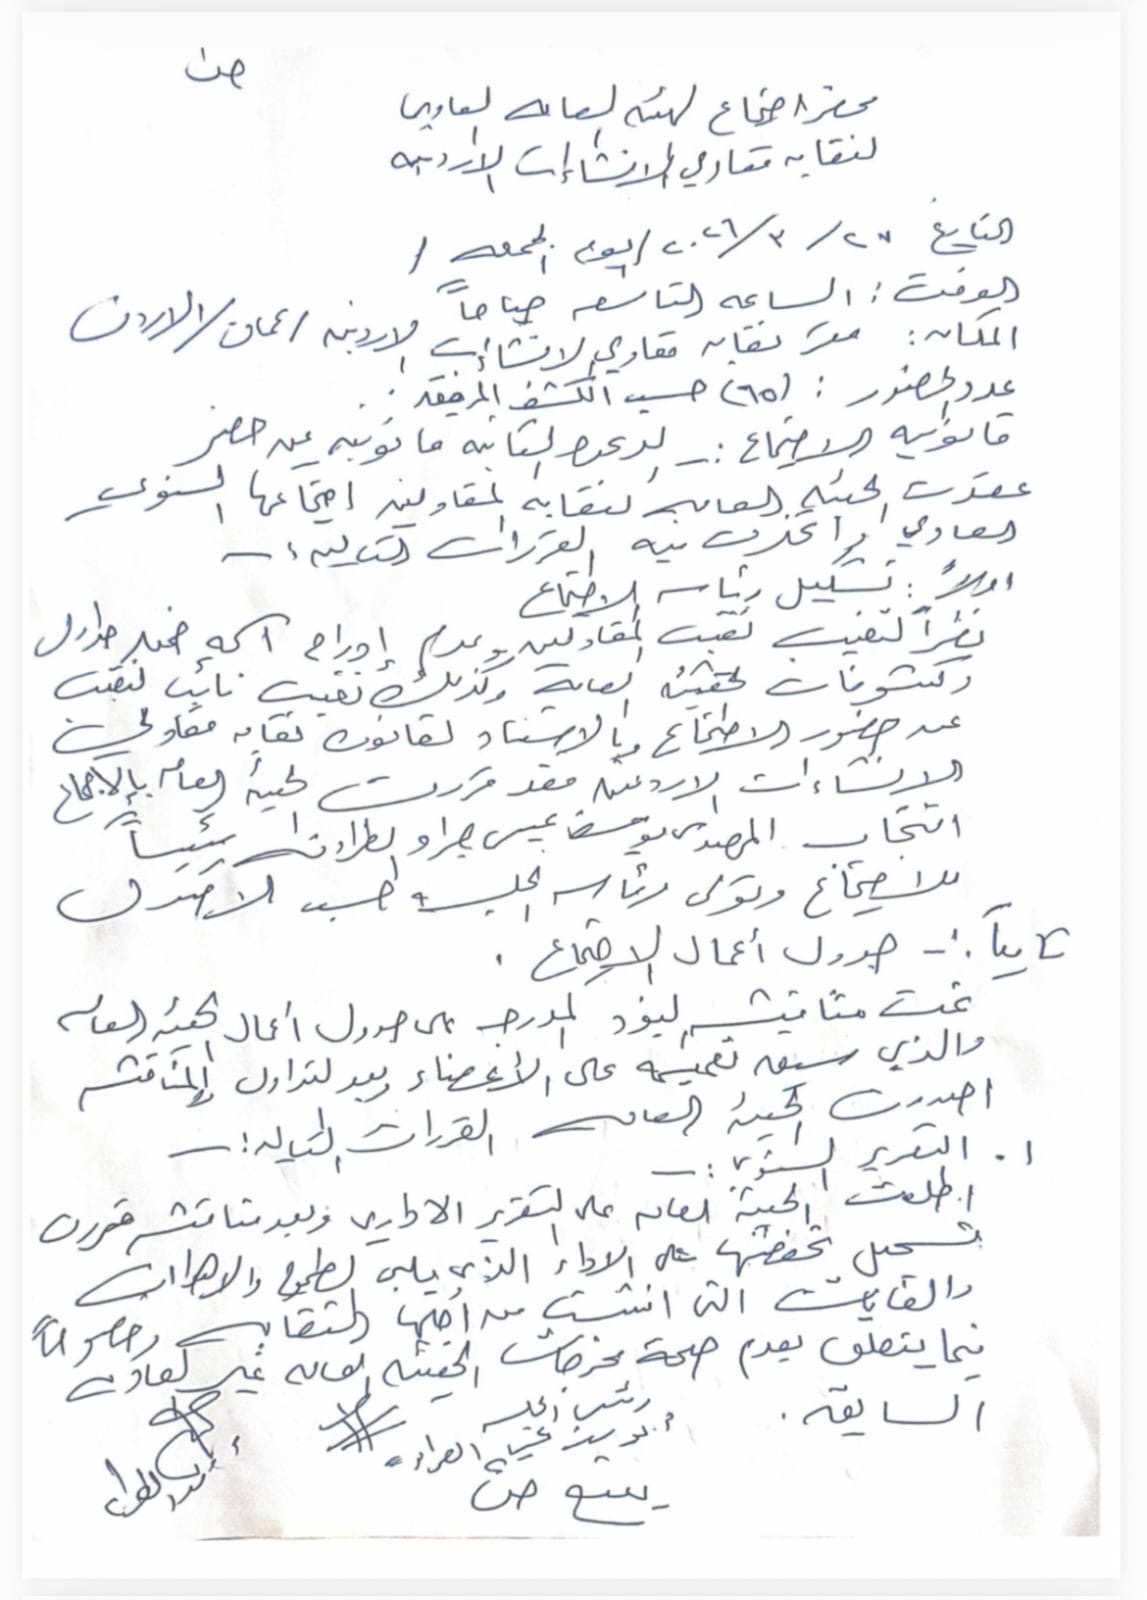 ص١
محضر اجتماع الهيئة العامة العادي
لنقابة مقاولي الانشاءات الاردنية
التاريخ ٢٧ / ٣ / ٢٠٢٦ / يوم الجمعه /
الوقت : الساعه التاسعه صباحاً
المكان : مقر نقابة مقاولي الانشاءات الاردنية / عمان / الاردن
عدد الحضور : (٦٥) حسب الكشف المرفقه .
قانونية الاجتماع :- الدعوة الثانيه قانونية بمن حضر
عقدت الهيئة العامة لنقابة المقاولين اجتماعها السنوي
العادي و اتخذت فيه القرارات التاليه :-
اولاً : تشكيل رئاسة الاجتماع
نظراً لتغيب نقيب المقاولين وعدم إدراج اسمه ضمن جداول
وكشوفات الهيئة العامة وكذلك تغيب نائب النقيب
عن حضور الاجتماع وبالاستناد لقانون نقابة مقاولي
الانشاءات الاردنية فقد قررت الهيئة العامه بالإجماع
انتخاب المهندس يوسف عيسى الطراونه رئيساً
للاجتماع وتولى رئاسة الجلسه حسب الاصول
ثانياً :- جدول أعمال الاجتماع .
تمت مناقشة البنود المدرجه على جدول أعمال الهيئة العامه
والذي سبق تعميمه على الأعضاء وبعد التداول والمناقشه
اصدرت الهيئة العامه القرارات التاليه :-
١. التقرير السنوي :-
اطلعت الهيئة العامه على التقرير الاداري وبعد مناقشته قررت
تسجيل تحفظها على الاداء الذي يلبي الطموح والاهداف
والغايات التي انشئت من أجلها النقابه وخصوصاً
فيما يتعلق بعدم صحة مخرجات الهيئة العامه غير العادية
السابقه .
رئيس الجلسه
يتبع ص٢